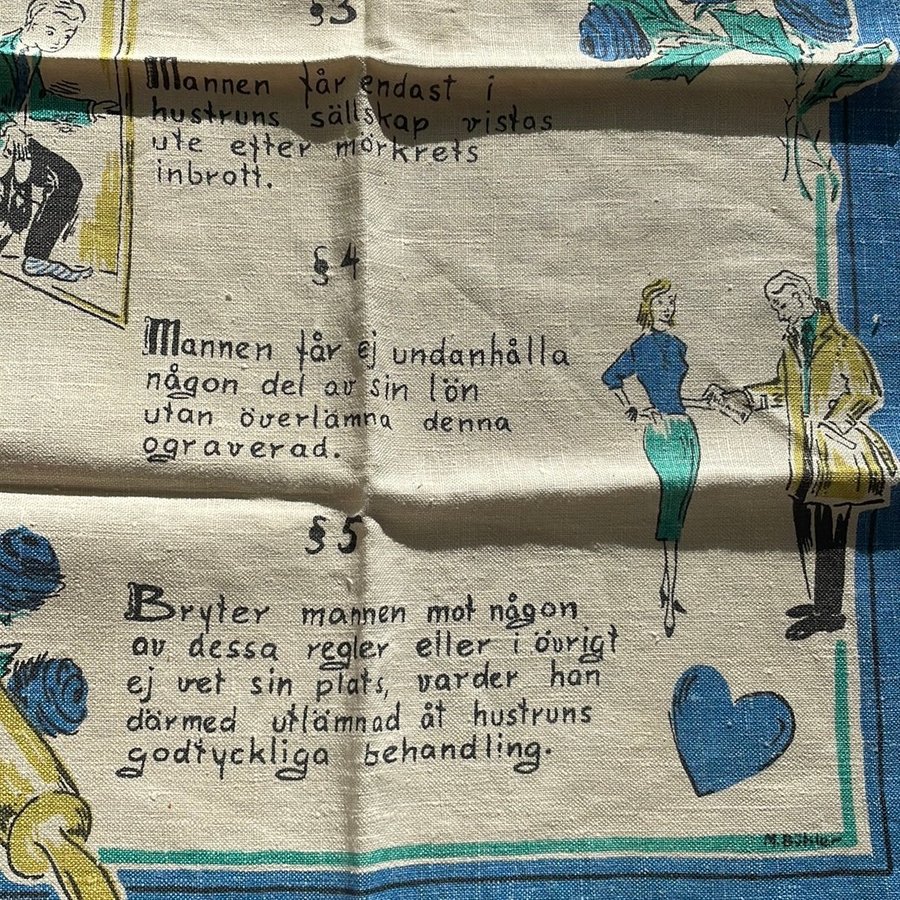 §3
Mannen får endast i
hustruns sällskap vistas
ute efter mörkrets
inbrott.
§4
Mannen får ej undanhålla
någon del av sin lön
utan överlämna denna
ograverad.
§5
Bryter mannen mot någon
av dessa regler eller i övrigt
ej vet sin plats, varder han
därmed utlämnad åt hustruns
godtyckliga behandling.